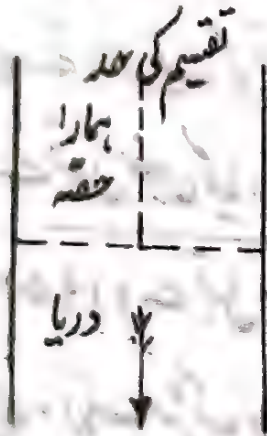 تقسیم کی حد
ہمارا
حصہ
دریا